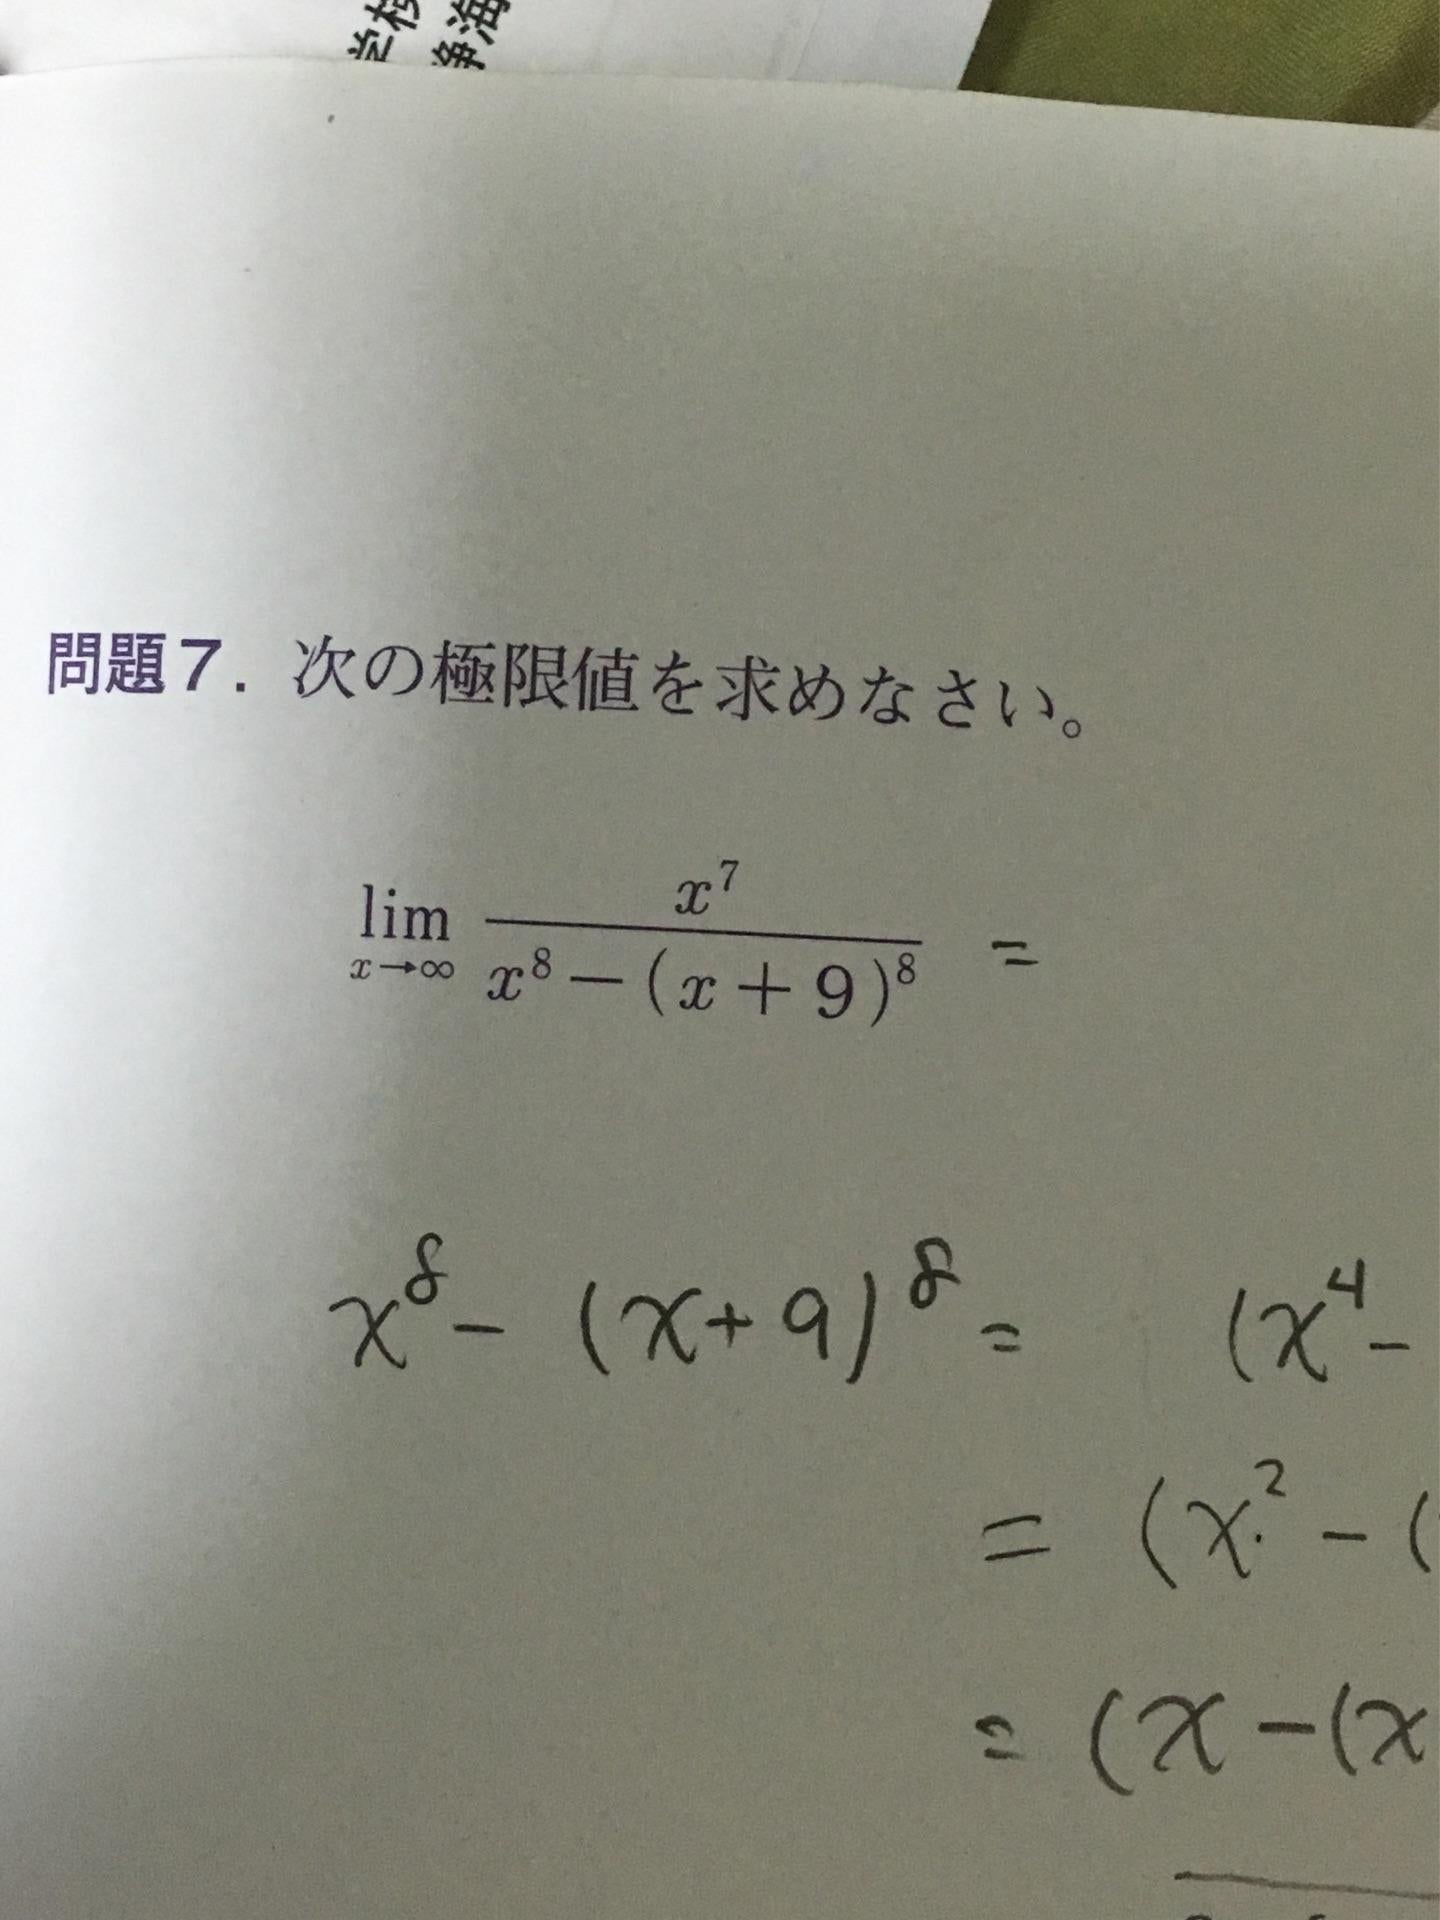 学校
浄海
問題7. 次の極限値を求めなさい。
lim x→∞ x⁷ / x⁸ − (x + 9)⁸ =
x⁸ − (x + 9)⁸ = (x⁴ −
= (x² − (
= (x − (x